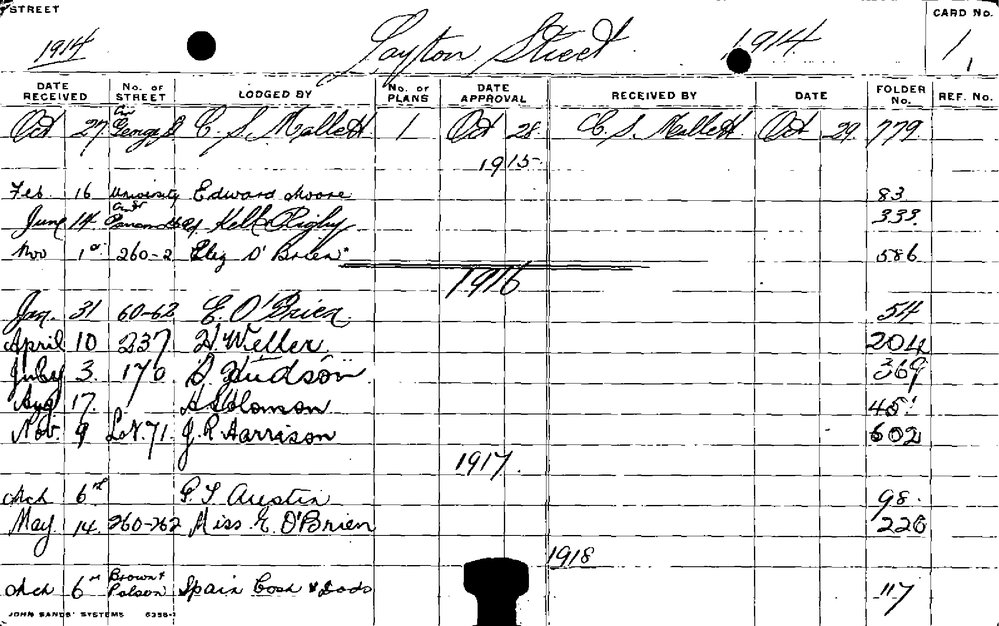 STREET
CARD NO.
1914 Layton Street 1914 1
1
DATE RECEIVED NO. OF STREET LODGED BY NO. OF PLANS DATE APPROVAL RECEIVED BY DATE FOLDER NO. REF. NO.
Oct 27 C. S. Mallett 1 Oct 28 C. S. Mallett Oct 29 779
1915
Feb. 16 University Edward Moore 83
June 14 Kell & Rigby 333
Nov 1st 260-2 Eliz O'Brien 586
1916
Jan. 31 60-62 E. O'Brien 54
April 10 237 H. Weller 204
July 3 170 Hudson 369
Aug 17 45
Nov. 9 Lot 71 J. R. Harrison 602
1917.
Mch 6th Austin 98.
May 14 260-262 Miss E. O'Brien 226
1918
Mch 6th Brown & Polson Spain Cosh & Dods 117
JOHN SANDS' SYSTEMS